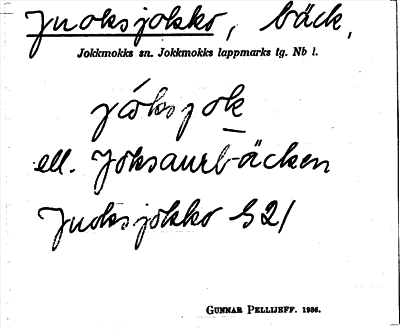 Juoksjokko, bäck,
Jokkmokks sn. Jokkmokks lappmarks tg. Nb l.
jóksjok
ell. Joksaurbäcken
Juoksjokko S21
GUNNAR PELLIJEFF. 1956.